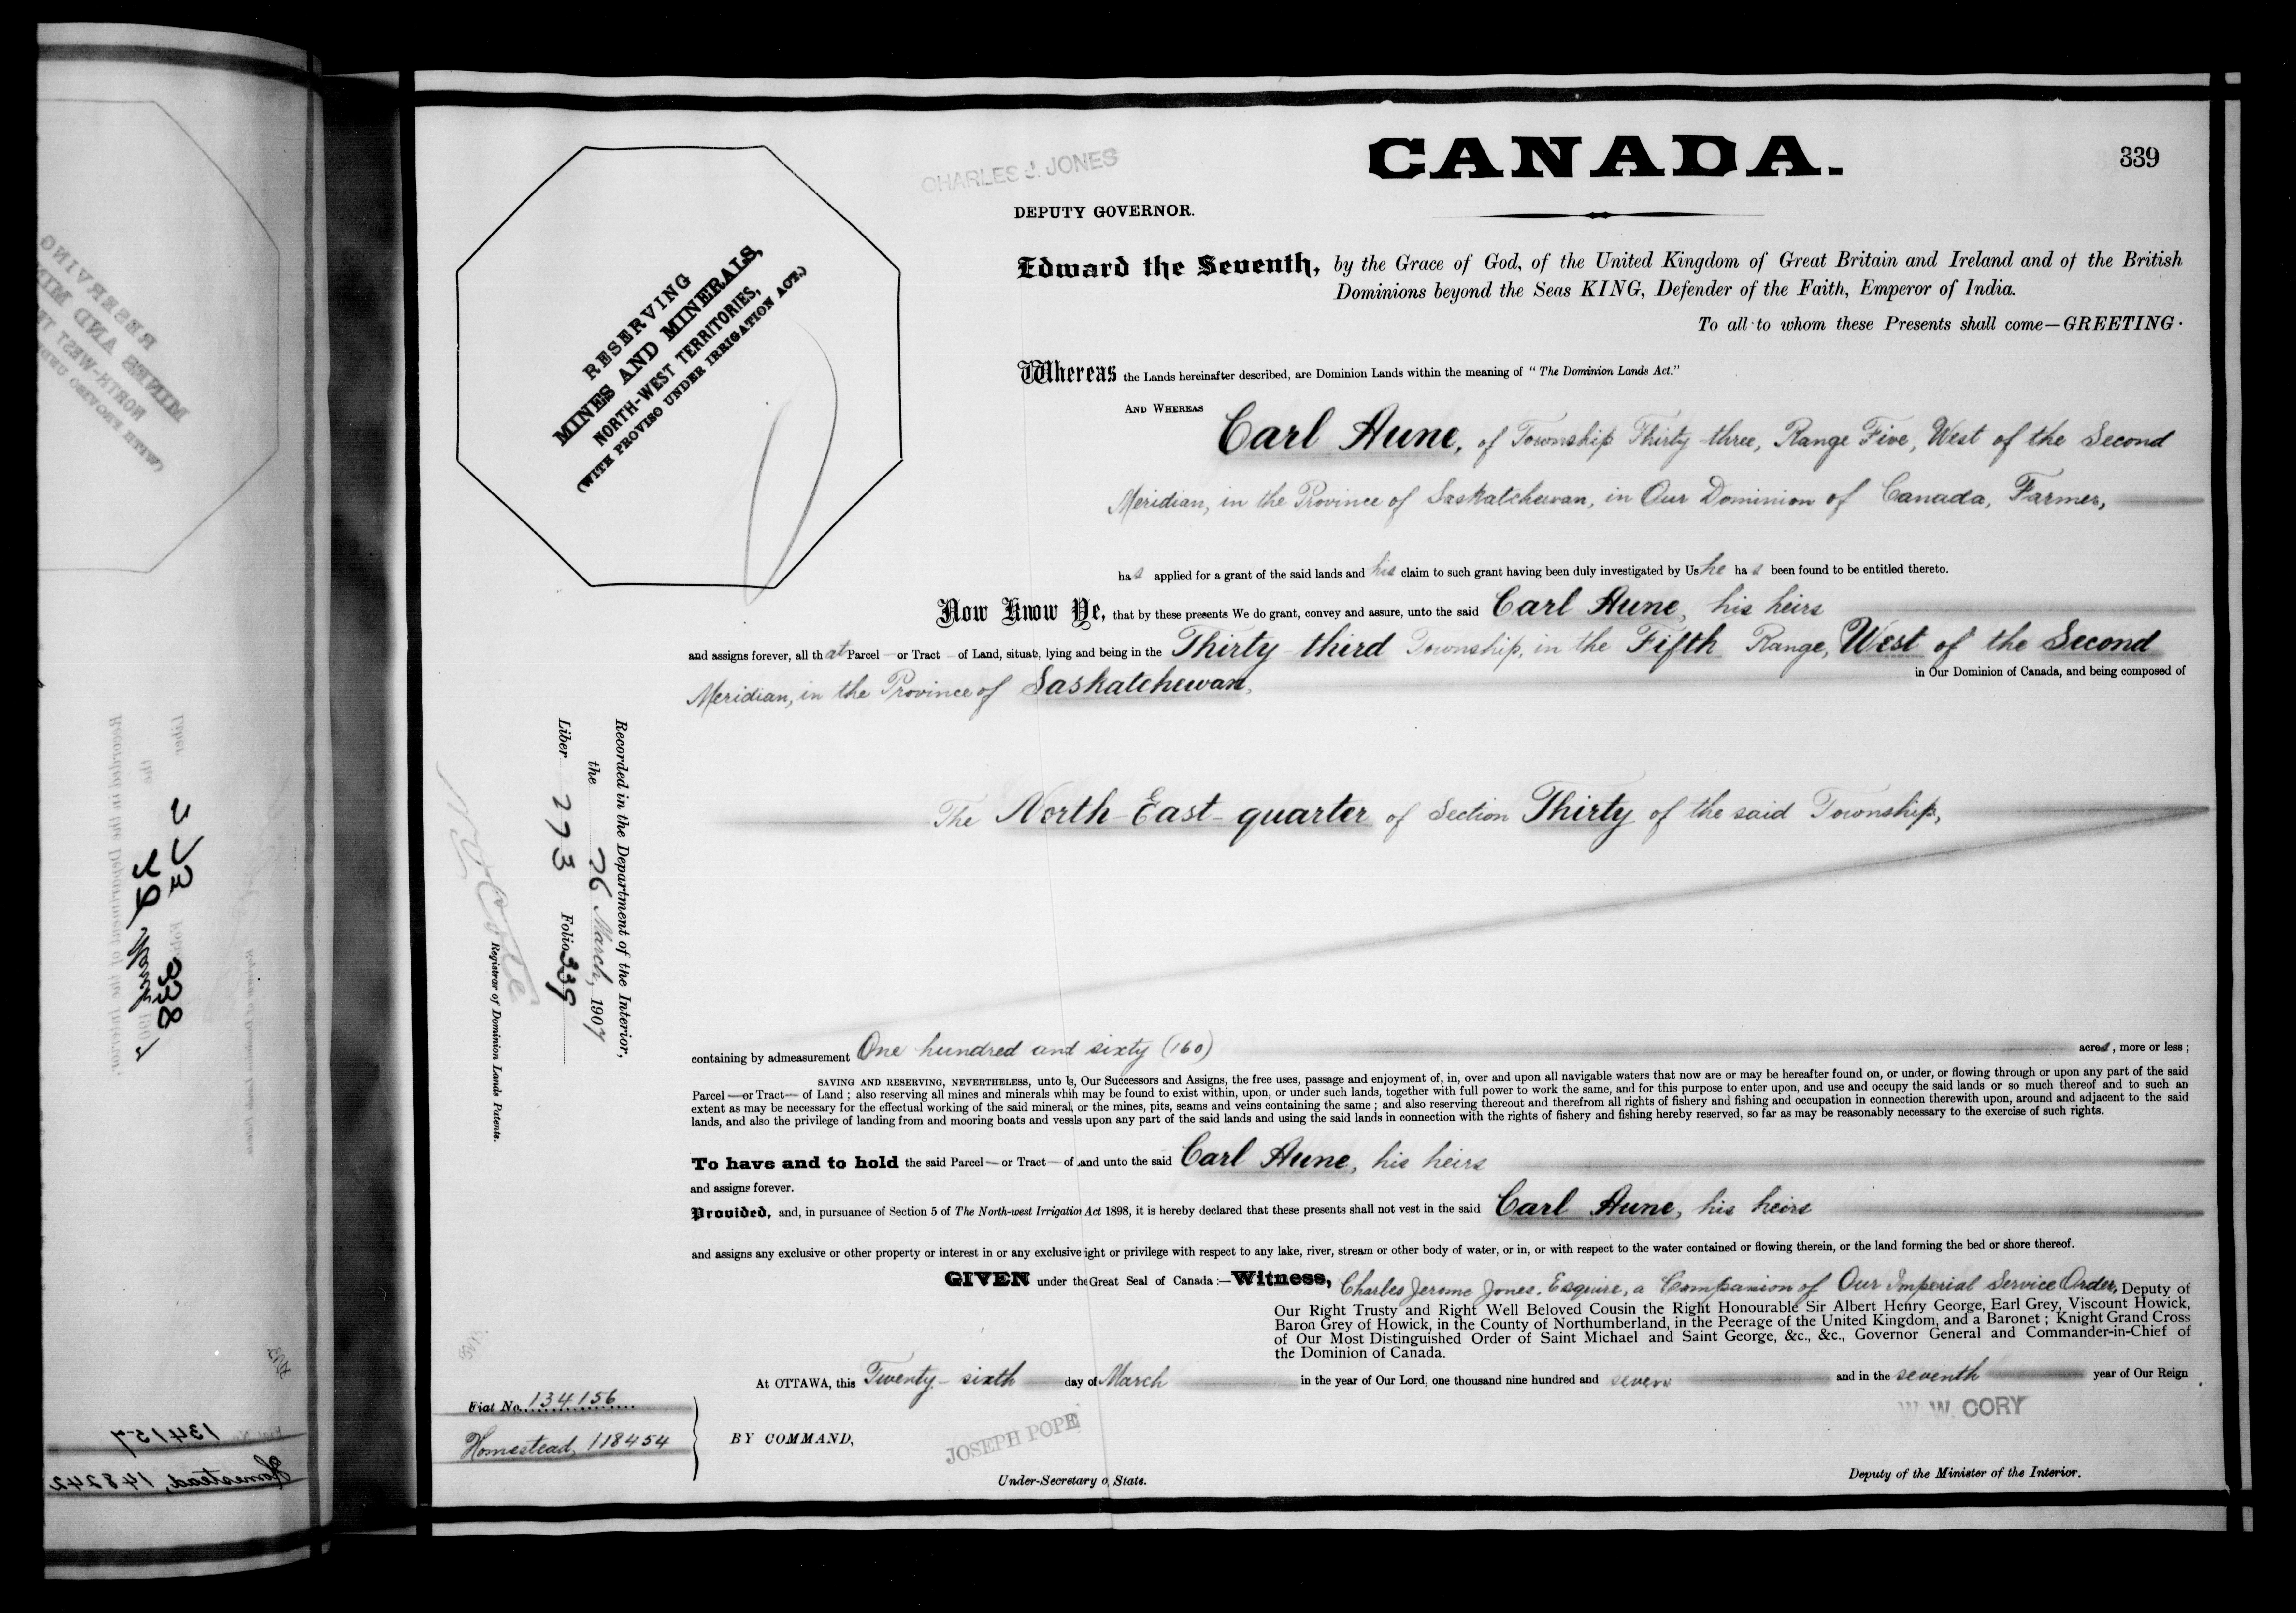 CANADA.
339
CHARLES J. JONES
DEPUTY GOVERNOR.
RESERVING
MINES AND MINERALS,
NORTH-WEST TERRITORIES,
(WITH PROVISO UNDER IRRIGATION ACT.)
Edward the Seventh, by the Grace of God, of the United Kingdom of Great Britain and Ireland and of the British
Dominions beyond the Seas KING, Defender of the Faith, Emperor of India.
To all to whom these Presents shall come—GREETING.
Whereas the Lands hereinafter described, are Dominion Lands within the meaning of "The Dominion Lands Act."
AND WHEREAS
Carl Aune, of Township Thirty-three, Range Five, West of the Second
Meridian, in the Province of Saskatchewan, in Our Dominion of Canada, Farmer,
has applied for a grant of the said lands and his claim to such grant having been duly investigated by Us he has been found to be entitled thereto.
Now Know Ye, that by these presents We do grant, convey and assure, unto the said Carl Aune, his heirs
and assigns forever, all that Parcel or Tract of Land, situate, lying and being in the Thirty-third Township, in the Fifth Range, West of the Second
Meridian, in the Province of Saskatchewan, in Our Dominion of Canada, and being composed of
The North-East-quarter of Section Thirty of the said Township,
containing by admeasurement One hundred and sixty (160) acres, more or less;
SAVING AND RESERVING, NEVERTHELESS, unto Us, Our Successors and Assigns, the free uses, passage and enjoyment of, in, over and upon all navigable waters that now are or may be hereafter found on, or under, or flowing through or upon any part of the said
Parcel—or Tract—of Land; also reserving all mines and minerals whih may be found to exist within, upon, or under such lands, together with full power to work the same, and for this purpose to enter upon, and use and occupy the said lands or so much thereof and to such an
extent as may be necessary for the effectual working of the said mineral, or the mines, pits, seams and veins containing the same; and also reserving thereout and therefrom all rights of fishery and fishing and occupation in connection therewith upon, around and adjacent to the said
lands, and also the privilege of landing from and mooring boats and vessls upon any part of the said lands and using the said lands in connection with the rights of fishery and fishing hereby reserved, so far as may be reasonably necessary to the exercise of such rights.
To have and to hold the said Parcel—or Tract—of and unto the said Carl Aune, his heirs
and assigns forever.
Provided, and, in pursuance of Section 5 of The North-west Irrigation Act 1898, it is hereby declared that these presents shall not vest in the said Carl Aune, his heirs
and assigns any exclusive or other property or interest in or any exclusive ight or privilege with respect to any lake, river, stream or other body of water, or in, or with respect to the water contained or flowing therein, or the land forming the bed or shore thereof.
GIVEN under the Great Seal of Canada:—Witness, Charles Jerome Jones, Esquire, a Companion of Our Imperial Service Order, Deputy of
Our Right Trusty and Right Well Beloved Cousin the Right Honourable Sir Albert Henry George, Earl Grey, Viscount Howick,
Baron Grey of Howick, in the County of Northumberland, in the Peerage of the United Kingdom, and a Baronet; Knight Grand Cross
of Our Most Distinguished Order of Saint Michael and Saint George, &c., &c., Governor General and Commander-in-Chief of
the Dominion of Canada.
At OTTAWA, this Twenty-sixth day of March in the year of Our Lord, one thousand nine hundred and seven and in the seventh year of Our Reign
W. W. CORY
Fiat No. 134156
Homestead, 118454
BY COMMAND,
JOSEPH POPE
Under-Secretary o, State.
Deputy of the Minister of the Interior.
Recorded in the Department of the Interior,
the 26 March, 1907
Liber 273 Folio 339
N O Coté
Registrar of Dominion Lands Patents.
RESERVING
MINES AND MI
NORTH-WEST TE
(WITH PROVISO UND
Recorded in the Department of the Interior,
the
Liber Folio 338
Registrar of Dominion Lands Patents
134157
Homestead, 148242